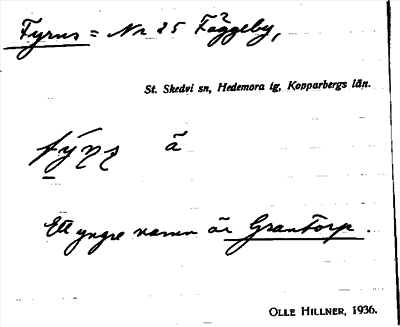 Fyrus = Nr 25 Fäggeby,
St. Skedvi sn, Hedemora tg, Kopparbergs län.
å
Ett yngre namn är Grantorp.
OLLE HILLNER, 1936.